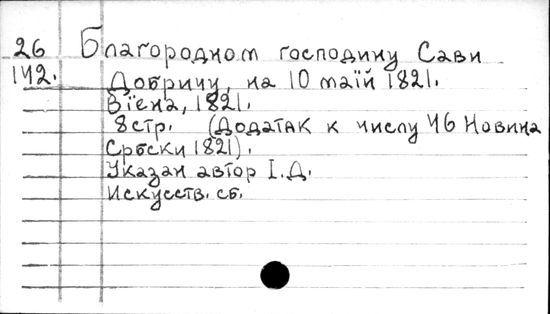 26 Благородном господину Сави
142. Добричу, на 10 маїй 1821.
Вїена, 1821.
8 стр. (Додатак к числу 46 Новина
Србски 1821).
Указан автор І.Д.
Искусств. сб.